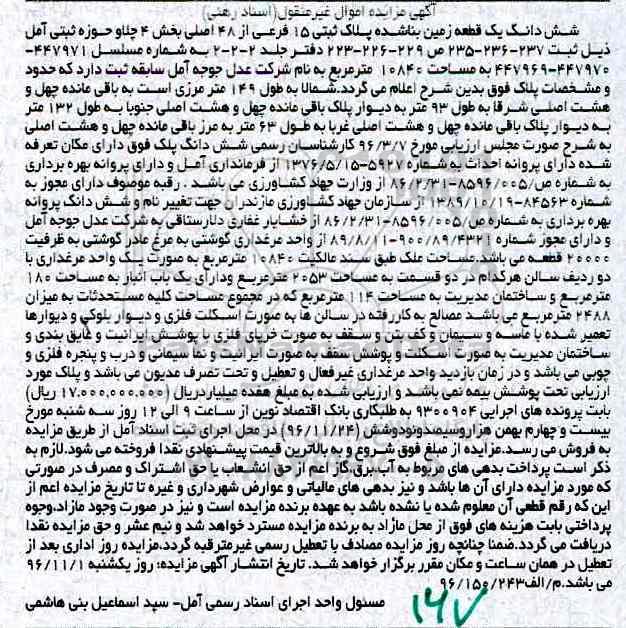 آگهی مزایده اموال غیرمنقول(اسناد رهنی)
شش دانگ یک قطعه زمین بناشده پلاک ثبتی ۱۵ فرعی از ۴۸ اصلی بخش ۴ چلاو حوزه ثبتی آمل
ذیل ثبت ۲۳۷-۲۳۶-۲۳۵ ص ۲۲۹-۲۲۶-۲۲۳ دفتر جلد ۲-۲-۲ به شماره مسلسل ۴۴۷۹۷۱-
۴۴۷۹۷۰-۴۴۷۹۶۹ به مساحت ۱۰۸۴۰ مترمربع به نام شرکت عدل جوجه آمل سابقه ثبت دارد که حدود
و مشخصات پلاک فوق بدین شرح اعلام می گردد.شمالا به طول ۱۴۹ متر مرزی است به باقی مانده چهل و
هشت اصلی شرقا به طول ۹۳ متر به دیوار پلاک باقی مانده چهل و هشت اصلی جنوبا به طول ۱۳۲ متر
به دیوار پلاک باقی مانده چهل و هشت اصلی غربا به طول ۶۳ متر به مرز باقی مانده چهل و هشت اصلی
به شرح صورت مجلس ارزیابی مورخ ۹۶/۳/۷ کارشناسان رسمی شش دانگ پلک فوق دارای مکان تعرفه
شده دارای پروانه احداث به شماره ۵۹۲۷-۱۳۷۶/۵/۱۵ از فرمانداری آمل و دارای پروانه بهره برداری
به شماره ص/۸۵۹۶/۰۰۵-۸۶/۲/۳۱ از وزارت جهاد کشاورزی می باشد . رقبه موصوف دارای مجوز به
شماره ۸۴۵۶۳-۱۳۸۹/۱۰/۱۹ از سازمان جهاد کشاورزی مازندران جهت تغییر نام و شش دانگ پروانه
بهره برداری به شماره ص/۸۵۹۶/۰۰۵-۸۶/۲/۳۱ از خشایار غفاری دلارستاقی به شرکت عدل جوجه آمل
و دارای مجوز شماره ۹۰۰/۸۹/۴۳۲۱-۸۹/۸/۱۱ از واحد مرغداری گوشتی به مرغ مادر گوشتی به ظرفیت
۲۰۰۰۰ قطعه می باشد.مساحت ملک طبق سند مالکیت ۱۰۸۴۰ مترمربع به صورت یک واحد مرغداری با
دو ردیف سالن هرکدام در دو قسمت به مساحت ۲۰۵۳ مترمربع ودارای یک باب انبار به مساحت ۱۸۰
مترمربع و ساختمان مدیریت به مساحت ۱۱۴ مترمربع که در مجموع مساحت کلیه مستحدثات به میزان
۲۴۸۸ مترمربع می باشد مصالح به کاررفته در سالن ها به صورت اسکلت فلزی و دیوار بلوکی و دیوارها
تعمیر شده با ماسه و سیمان و کف بتن و سقف به صورت خرپای فلزی با پوشش ایرانیت و عایق بندی و
ساختمان مدیریت به صورت اسکلت و پوشش سقف به صورت ایرانیت و نما سیمانی و درب و پنجره فلزی و
چوبی می باشد و در زمان بازدید واحد مرغداری غیرفعال و تعطیل و تحت تصرف مدیون می باشد و پلاک مورد
ارزیابی تحت پوشش بیمه نمی باشد و ارزیابی شده به مبلغ هفده میلیاردریال (۱۷,۰۰۰,۰۰۰,۰۰۰ ریال)
بابت پرونده های اجرایی ۹۳۰۰۹۰۴ به طلبکاری بانک اقتصاد نوین از ساعت ۹ الی ۱۲ روز سه شنبه مورخ
بیست و چهارم بهمن هزاروسیصدونودوشش (۹۶/۱۱/۲۴) در محل اجرای ثبت اسناد آمل از طریق مزایده
به فروش می رسد.مزایده از مبلغ فوق شروع و به بالاترین قیمت پیشنهادی نقدا فروخته می شود.لازم به
ذکر است پرداخت بدهی های مربوط به آب،برق،گاز اعم از حق انشعاب یا حق اشتراک و مصرف در صورتی
که مورد مزایده دارای آن ها باشد و نیز بدهی های مالیاتی و عوارض شهرداری و غیره تا تاریخ مزایده اعم از
این که رقم قطعی آن معلوم شده یا نشده باشد به عهده برنده مزایده است و نیز در صورت وجود مازاد،وجوه
پرداختی بابت هزینه های فوق از محل مازاد به برنده مزایده مسترد خواهد شد و نیم عشر و حق مزایده نقدا
دریافت می گردد.ضمنا چنانچه روز مزایده مصادف با تعطیل رسمی غیرمترقبه گردد.مزایده روز اداری بعد از
تعطیل در همان ساعت و مکان مقرر برگزار خواهد شد. تاریخ انتشار آگهی مزایده: روز یکشنبه ۹۶/۱۱/۱
می باشد.م/الف۹۶/۱۵۰/۲۴۳
مسئول واحد اجرای اسناد رسمی آمل- سید اسماعیل بنی هاشمی
۱۶۷